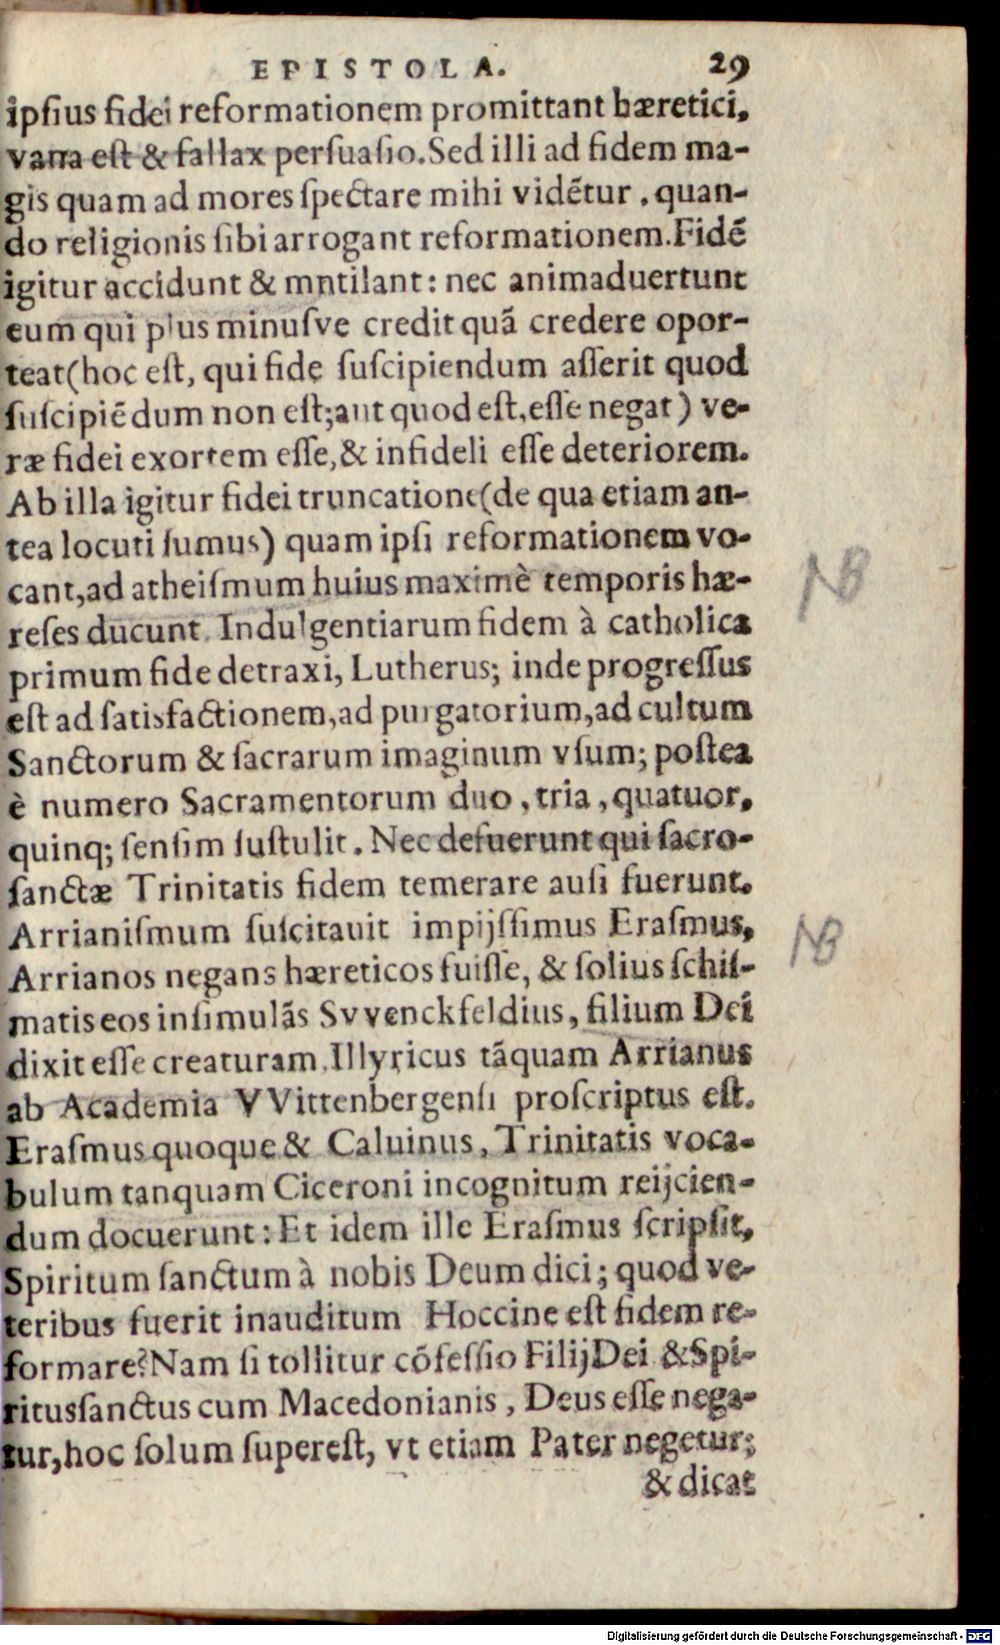 EPISTOLA. 29
ipſius fidei reformationem promittant hæretici,
vana eſt & fallax perſuaſio. Sed illi ad fidem ma-
gis quam ad mores ſpectare mihi vidẽtur, quan-
do religionis ſibi arrogant reformationem. Fidẽ
igitur accidunt & mntilant: nec animaduertunt
eum qui plus minuſve credit quã credere opor-
teat (hoc eſt, qui fide ſuſcipiendum aſſerit quod
ſuſcipiẽdum non eſt; aut quod eſt, eſſe negat) ve-
ræ fidei exortem eſſe, & infideli eſſe deteriorem.
Ab illa igitur fidei truncatione (de qua etiam an-
tea locuti ſumus) quam ipſi reformationem vo-
cant, ad atheiſmum huius maximè temporis hæ-
reſes ducunt. Indulgentiarum fidem à catholica
primum fide detraxi, Lutherus; inde progreſſus
eſt ad ſatisfactionem, ad purgatorium, ad cultum
Sanctorum & ſacrarum imaginum vſum; poſtea
è numero Sacramentorum duo, tria, quatuor,
quinq; ſenſim ſuſtulit. Nec defuerunt qui ſacro-
ſanctæ Trinitatis fidem temerare auſi fuerunt.
Arrianiſmum ſuſcitauit impijſſimus Eraſmus,
Arrianos negans hæreticos fuiſſe, & ſolius ſchiſ-
matis eos inſimulãs Svvenckfeldius, filium Dei
dixit eſſe creaturam, Illyricus tãquam Arrianus
ab Academia VVittenbergenſi proſcriptus eſt.
Eraſmus quoque & Caluinus, Trinitatis voca-
bulum tanquam Ciceroni incognitum reijcien-
dum docuerunt: Et idem ille Eraſmus ſcripſit,
Spiritum ſanctum à nobis Deum dici; quod ve-
teribus fuerit inauditum Hoccine eſt fidem re-
formare? Nam ſi tollitur cõfeſſio Filij Dei & Spi-
ritusſanctus cum Macedonianis, Deus eſſe nega-
tur, hoc ſolum ſupereſt, vt etiam Pater negetur;
& dicat
NB
NB
Digitalisierung gefördert durch die Deutsche Forschungsgemeinschaft - DFG